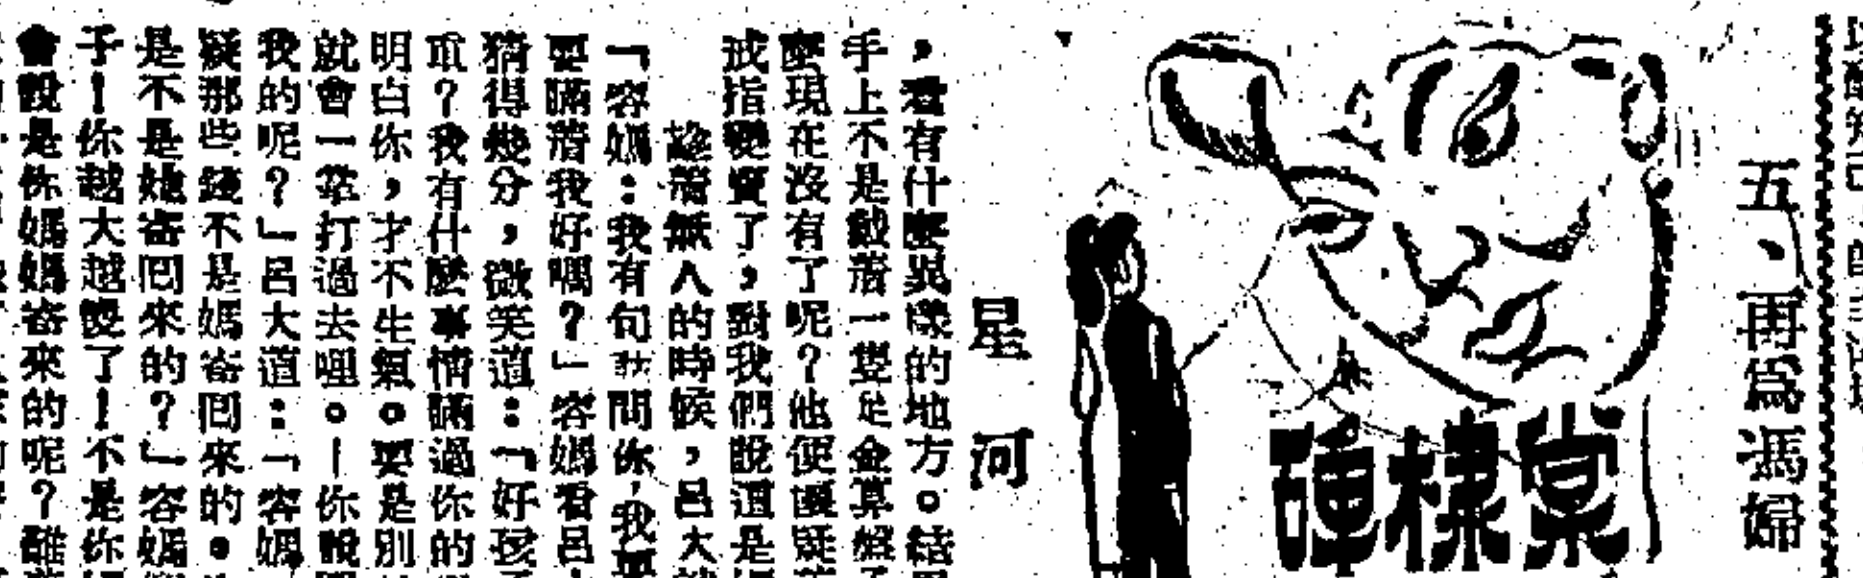 五、再爲馮婦
棠棣碑
星河
，看有什麼異樣的地方。結
手上不是戴着一隻足金算盤
麼現在沒有了呢？他便懷疑
戒指變賣了，對我們說道是
趁着無人的時候，呂大
「容媽：我有句話問你，我要
要瞞着我好嗎？」容媽看呂
猜得幾分，微笑道：「好孩
重？我有什麼事情瞞過你的
明白你，才不生氣。要是別
就會一掌打過去哩。—你說
我的呢？」呂大道：「容媽
疑那些錢不是媽寄囘來的。
是不是她寄囘來的？」容媽
子！你越大越變了！不是你
會說是你媽媽寄來的呢？誰